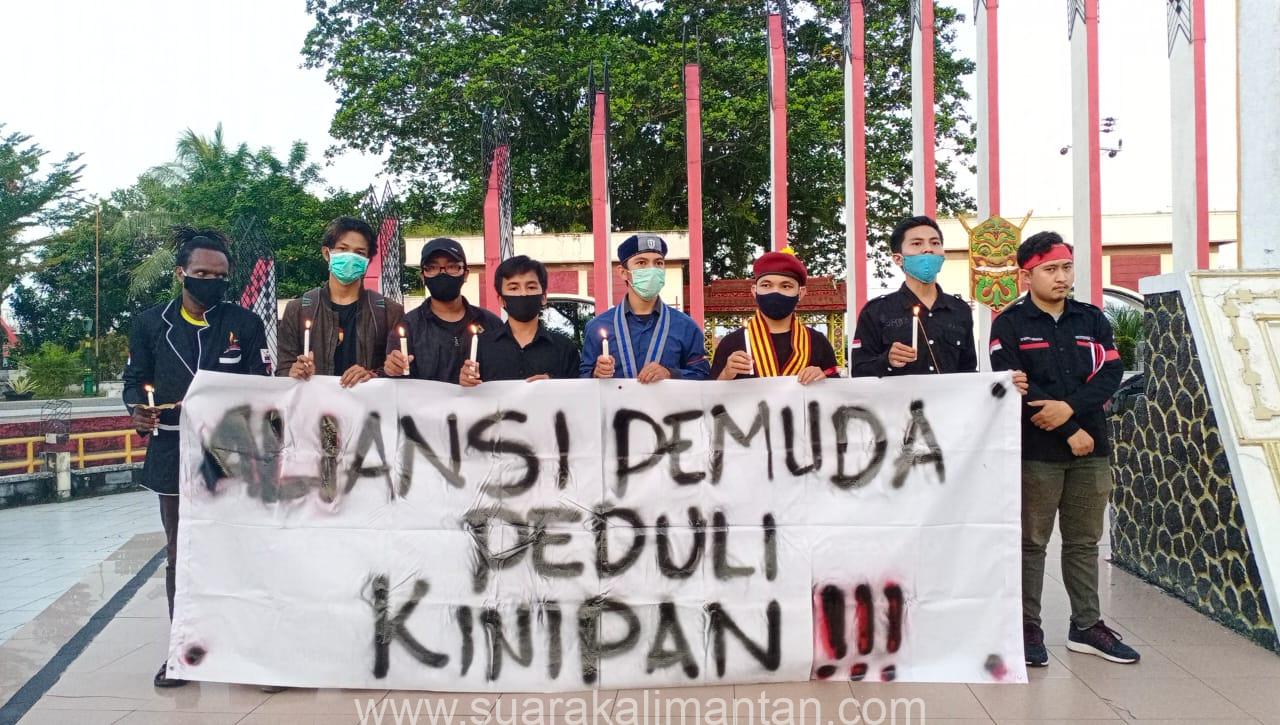 ALIANSI PEMUDA
PEDULI
KINIPAN !!!
www.suarakalimantan.com